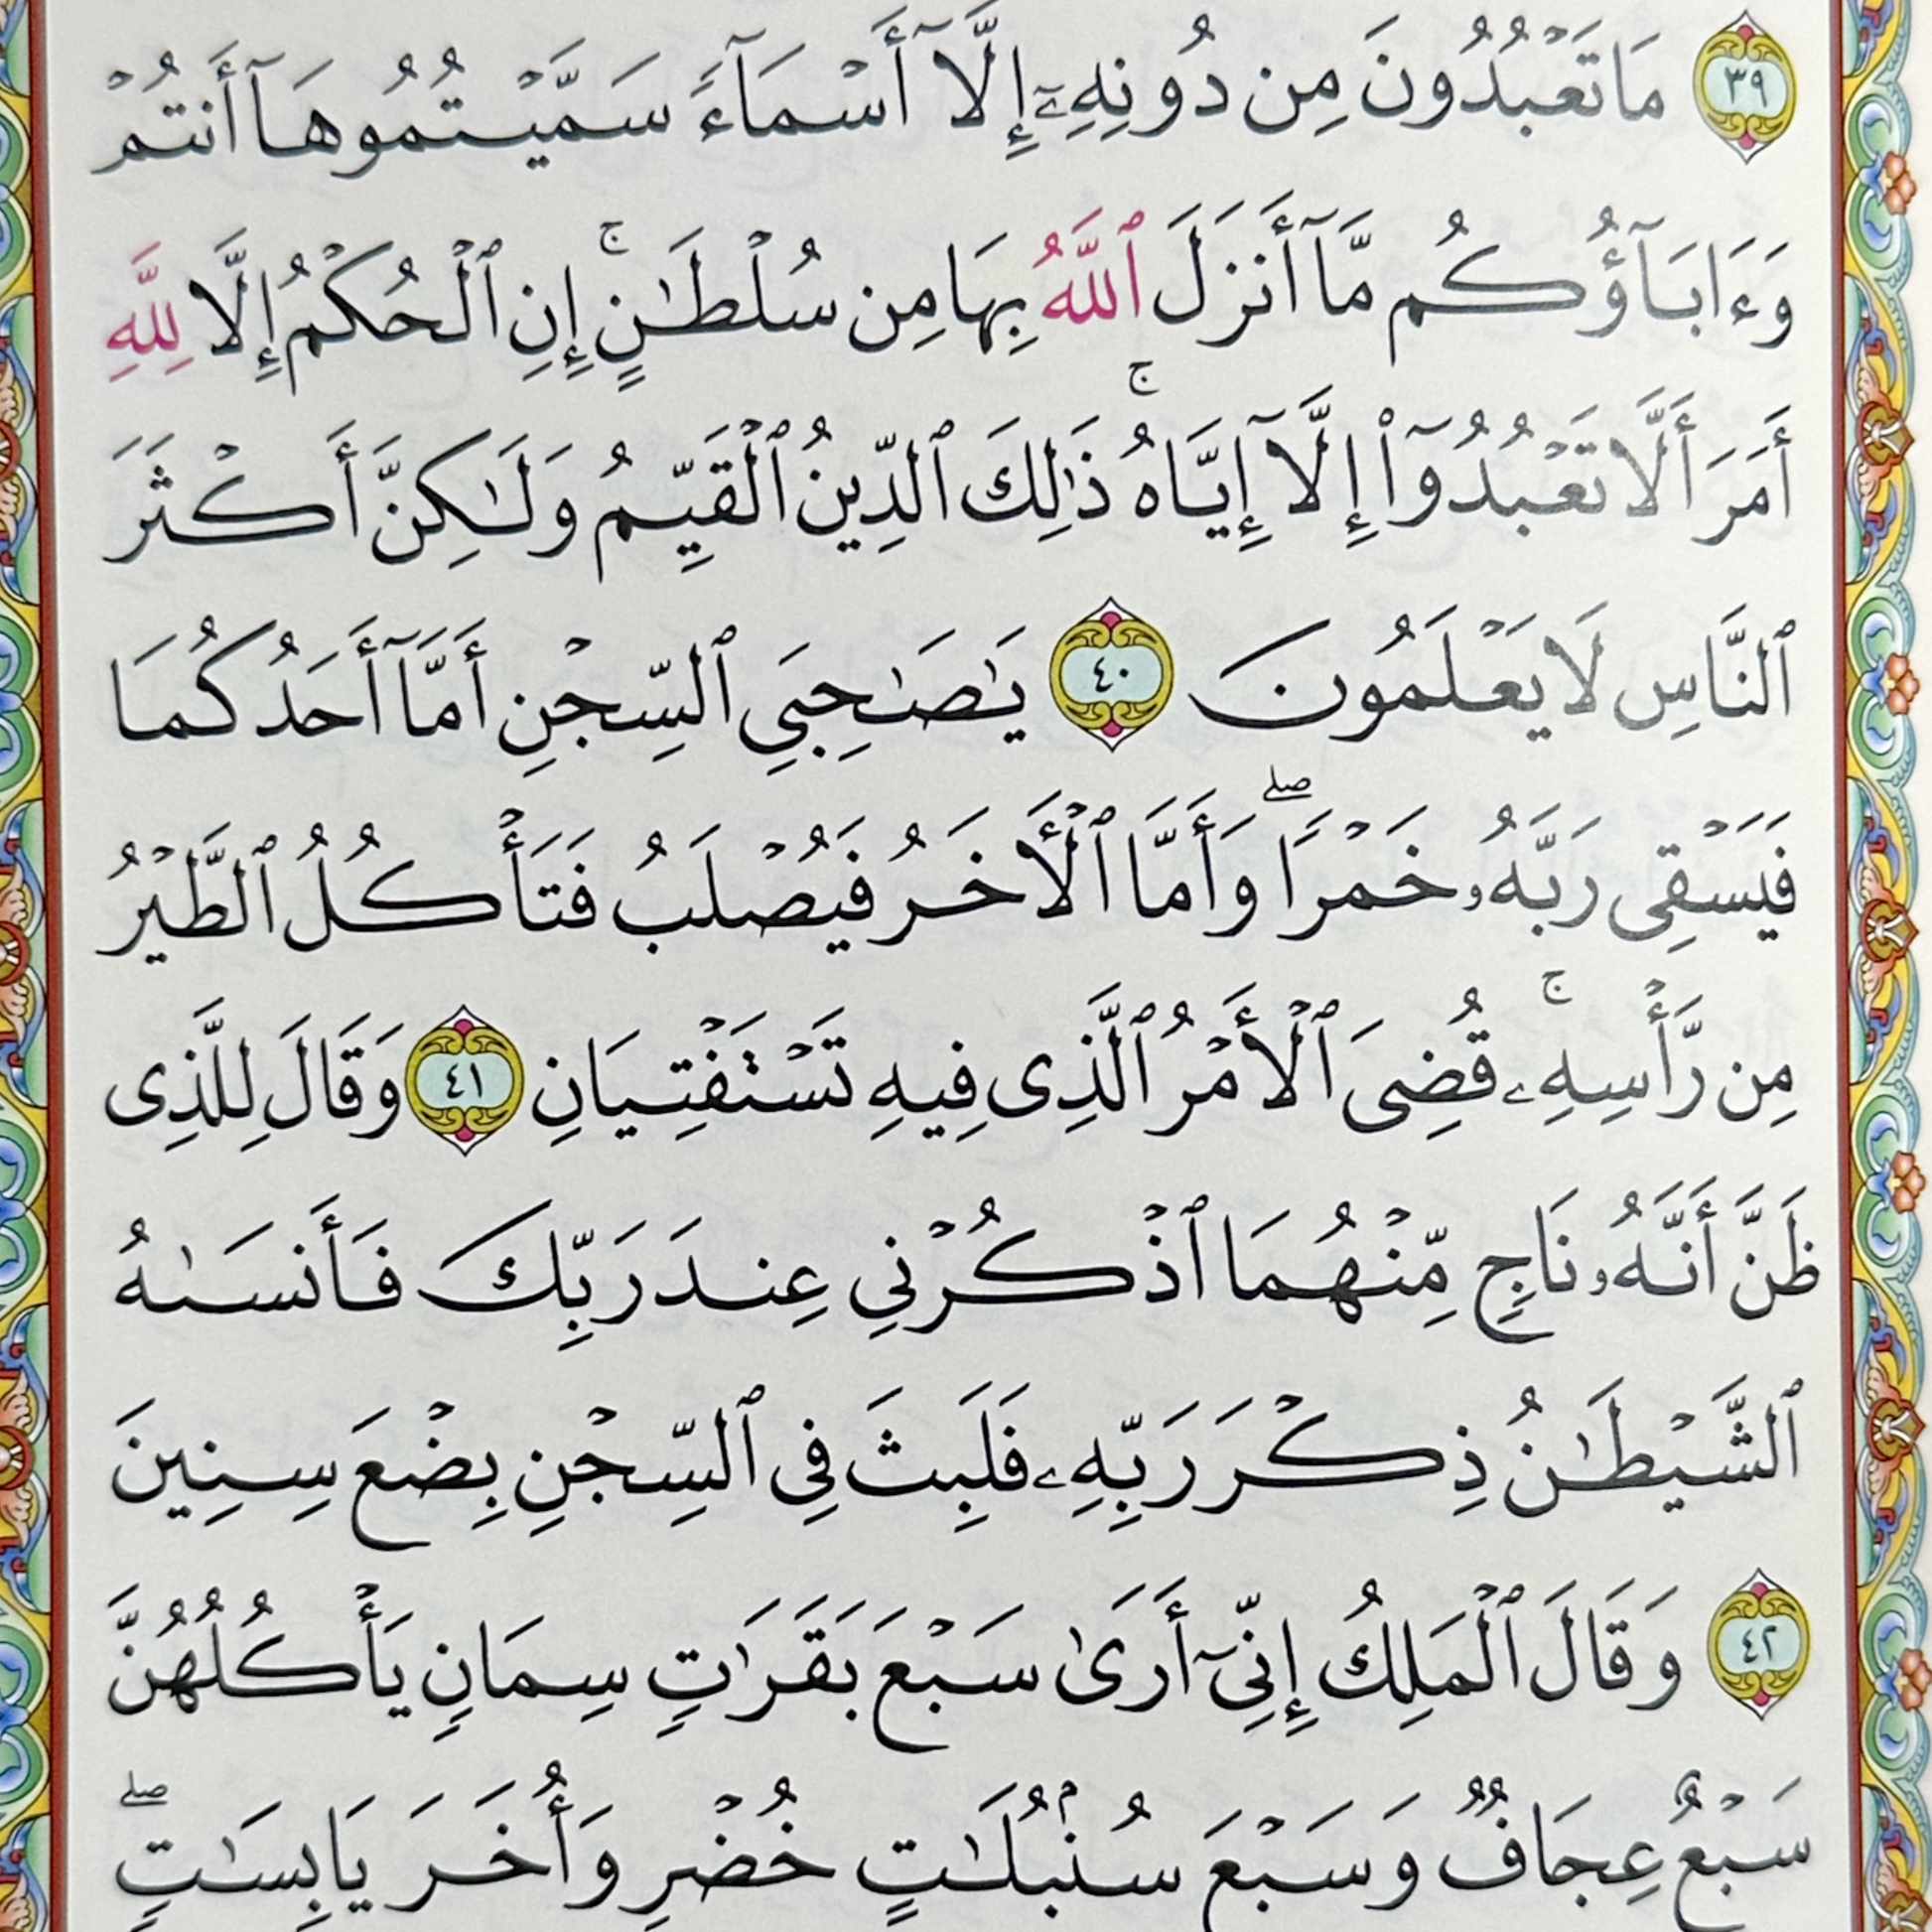 ٣٩ مَا تَعْبُدُونَ مِن دُونِهِۦٓ إِلَّآ أَسْمَآءً سَمَّيْتُمُوهَآ أَنتُمْ
وَءَابَآؤُكُم مَّآ أَنزَلَ ٱللَّهُ بِهَا مِن سُلْطَٰنٍ ۚ إِنِ ٱلْحُكْمُ إِلَّا لِلَّهِ
أَمَرَ أَلَّا تَعْبُدُوٓا۟ إِلَّآ إِيَّاهُ ۚ ذَٰلِكَ ٱلدِّينُ ٱلْقَيِّمُ وَلَٰكِنَّ أَكْثَرَ
ٱلنَّاسِ لَا يَعْلَمُونَ ٤٠ يَٰصَٰحِبَىِ ٱلسِّجْنِ أَمَّآ أَحَدُكُمَا
فَيَسْقِى رَبَّهُۥ خَمْرًا ۖ وَأَمَّا ٱلْأَخَرُ فَيُصْلَبُ فَتَأْكُلُ ٱلطَّيْرُ
مِن رَّأْسِهِۦ ۚ قُضِىَ ٱلْأَمْرُ ٱلَّذِى فِيهِ تَسْتَفْتِيَانِ ٤١ وَقَالَ لِلَّذِى
ظَنَّ أَنَّهُۥ نَاجٍ مِّنْهُمَا ٱذْكُرْنِي عِندَ رَبِّكَ فَأَنسَىٰهُ
ٱلشَّيْطَٰنُ ذِكْرَ رَبِّهِۦ فَلَبِثَ فِى ٱلسِّجْنِ بِضْعَ سِنِينَ
٤٢ وَقَالَ ٱلْمَلِكُ إِنِّىٓ أَرَىٰ سَبْعَ بَقَرَٰتٍ سِمَانٍ يَأْكُلُهُنَّ
سَبْعٌ عِجَافٌ وَسَبْعَ سُنۢبُلَٰتٍ خُضْرٍ وَأُخَرَ يَابِسَٰتٍ ۖ